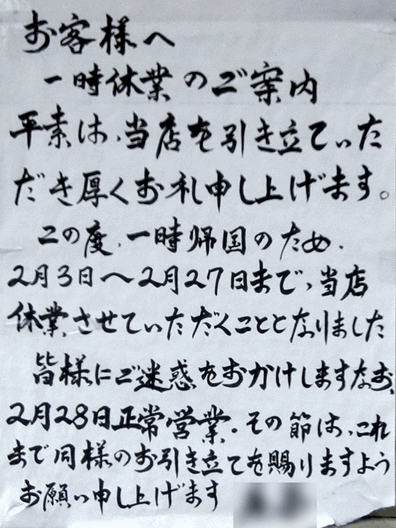 お客様へ
一時休業のご案内
平素は、当店を引き立ていた
だき厚くお礼申し上げます。
この度、一時帰国のため、
2月3日へ2月27日まで、当店
休業させていただくこととなりました
皆様にご迷惑をおかけしますなお、
2月28日正常営業。その節は、これ
まで同様のお引き立てを賜りますよう
お願い申し上げます